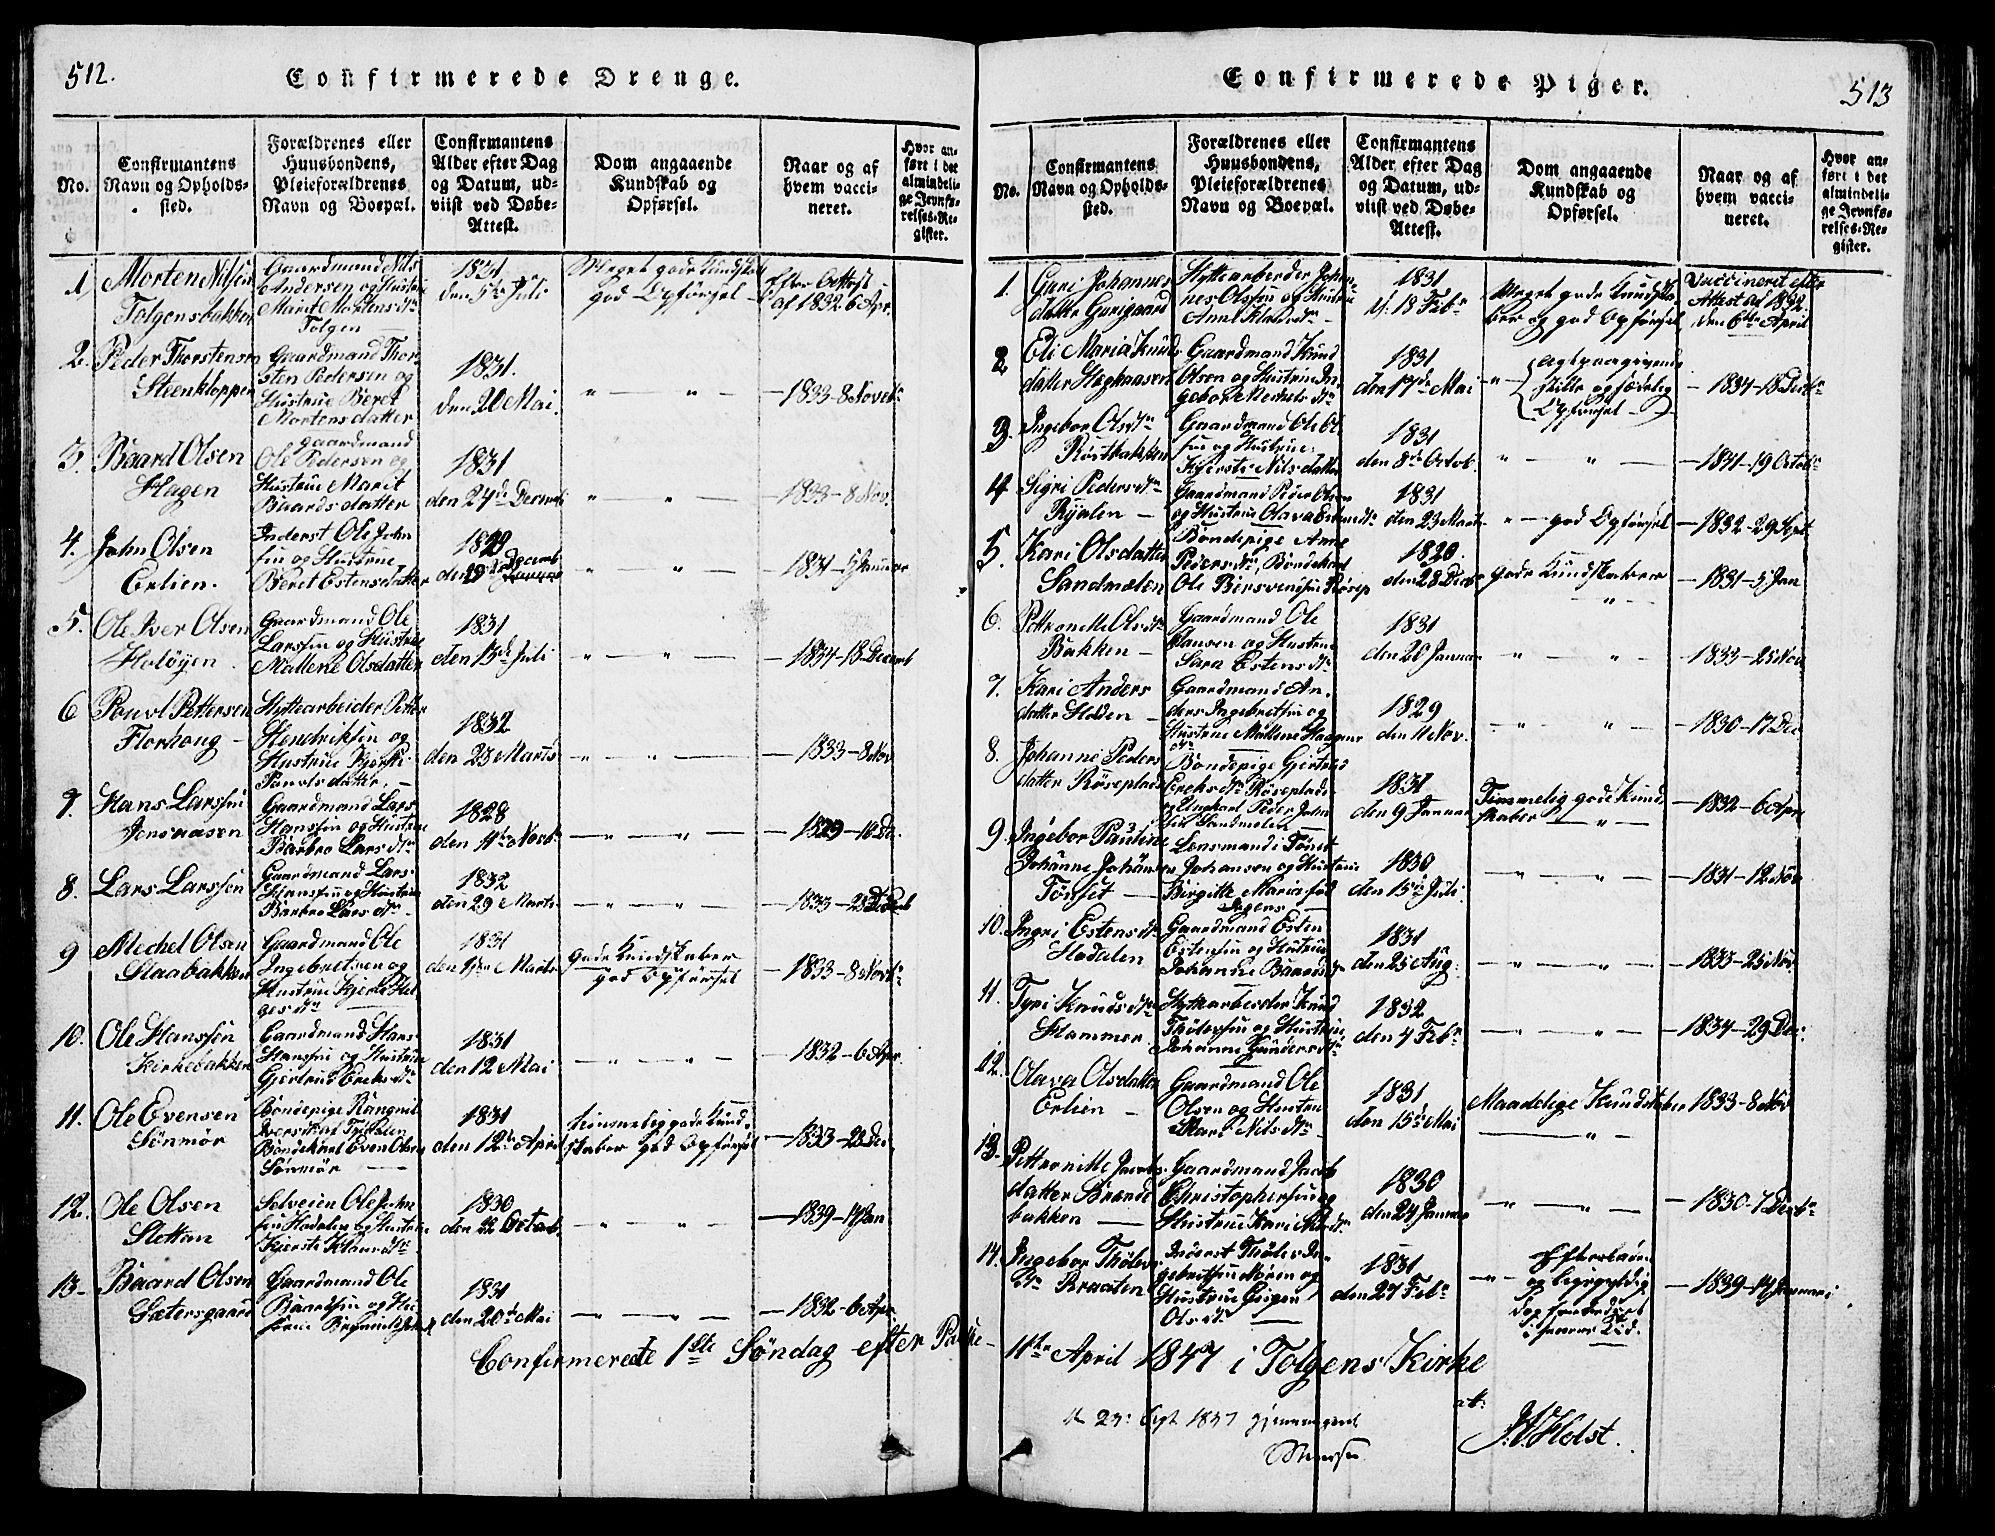 512.
Confirmerede Drenge.
No.
Confirmantens
Navn og Opholds-
sted.
Forældrenes eller
Huusbondens,
Pleieforældrenes
Navn og Boepæl.
Confirmantens
Alder efter Dag
og Datum, ud-
viist ved Døbe-
Attest.
Dom angaaende
Kundskab og
Opførsel.
Naar og af
hvem vacci-
neret.
Hvor an-
ført i det
almindeli-
ge Jevnfø-
relses-Re-
gister.
1
Morten Nilsen
Tolgensbakken
Gaardmand Nils
Andersen og Hustrue
Marit Mortens Dr
Tolgen
1831
den 5te Juli
Meget gode Kundskab
god Opførsel
Efter Attest
af 1832 6 Apr.
2.
Peder Thorstensen
Steenkloppen
Gaardmand Thor
sten Pedersen og
Hustrue Beret
Mortensdatter
1831.
den 20 Mai
" "
1833-8 Novebr
3.
Baard Olsen
Hagen
gaardmand
Ole Pedersen og
Hustrue Marit
Baardsdatter
1831
den 24de Decemb
" "
1833-8 Nov.
4.
John Olsen
Erlien.
Inderst Ole John
sen og Hustrue
Beret Estensdatter
Decemb
" "
1831-5 Januar
5.
Ole Iver Olsen
Holøyen
Gaardmand Ole
Larssen og Hustrue
Mallene Olsdatter
1831
den 13de Juli
" "
1834-18 Decemb
6
Povol Pettersen
Florhong
Hytterbeider Petter
Hendriksen og
Hustrue Kjersti
Povols datter.
1832
den 23 Marts
" "
1833-8 Nov
7.
Hans Larssen
Jonsaasen
Gaardmand Lars
Hanssen og Hustrue
Barbro Lars Dr
1828
den 11te Novb
" "
1829-10 De.
8.
Lars Larssen
Gaardmand Lars
Hanssen og Hustrue
Barbro Lars Dr
1832
den 29 Marts
" "
1833-
9
Mechel Olsen
Staabakken
Gaardmand Ole
Ingebretsen og
Hustrue Kjersti Hel
ges Dr
1831
den 1ste Marts
gode Kundskaber
god Opførsel
1833-8 Novbr
10.
Ole Hanssen
Kirkebakken
Gaardmand Hans
Hanssen og Hustrue
Gjertrud Ereks Dr
1831
den 12 Mai
" "
1832-6 Apr.
11.
Ole Evensen
Sønmør
Bondepige Rangnil
Iversdat
Bondekarl Even Olsen
Sønmør
1831
den 12te April
temmelig gode Kund
skaber God Opførsel
1833-28 De.
12.
Ole Olsen
Slettan
Selveier Ole John
sen Hodalen og Hustrue
Kjersti Klaus Dr
1830
den 22 Octob
" "
1839-14 Jan
13
Baard Olsen
Sætersgaard
Gaardmand Ole
Baardsen og Hu
strue
1831
den 20de Mai
" "
1832-6 Apr.
Confirmerede 1ste Søndag efter Paaske
513
Confirmerede Piger.
No.
Confirmantens
Navn og Opholds-
sted.
Forældrenes eller
Huusbondens,
Pleieforældrenes
Navn og Boepæl.
Confirmantens
Alder efter Dag
og Datum, ud-
viist ved Døbe-
Attest.
Dom angaaende
Kundskab og
Opførsel.
Naar og af
hvem vacci-
neret.
Hvor an-
ført i det
almindeli-
ge Jevnfø-
relses-Re-
gister.
1.
Guri Johannes
datter Gurigaard
Hyttearbeider Johan
nes Olssen og Hustrue
Anne Klaus Dr
1831
d. 18 Febr
Meget gode Kundska
ber og god Opførsel
Vaccineret efter
Attest af 1832
den 6te April
2
Eli Maria Knuds
datter Hegknasen
Gaardmand Knud
Olsen og Hustrue In
gebor Mechels Dr
1831
den 17de Mai
" agtpaagivende
stille og sædelig
Opførsel
1834-18 Decbr
3.
Ingebor Ols Dr
Røstbakken
Gaardmand Ole Ol
sen og Hustrue
Kjersti Nilsdatter
1831
den 8de Octob.
" "
1831-19 Octobr
4
Sigri Peders Dr
Ryalen
Gaardmand Peder Olsen
og Hustrue Olava Dr
1831
den 23 Marts
" god Opførsel
1832-29 Sept
5.
Kari Olsdatter
Sandmælen
Bondepige Anne
Peders Dr, Bondekarl
Ole Bersvendsen Rørep
1820.
den 28 Decb
gode Kundskaber
"
1831-5 Jan
6.
Pettronelle Ols Dr
Bakken
Gaardmand Ole
Hansen og Hustrue
Sara Estens Dr
1831
den 20 Januar
" "
1833-25 Nov
7.
Kari Anders
datter Holden
Gaardmand An-
ders Ingebretsen og
Hustrue Mallene Haagens
Dr
1829
den 11 Nov.
" "
1830-17 De
8.
Johanne Peders
datter Røseplads
Bondepige Gjertrud
Ereks Dr Røseplads
og Ungkarl Peder John
sen Sandmælen
1831
den 9 Januar
Temmelig gode Kund
skaber "
1832-6 Apr
9.
Ingebor Pauline
Johanne Johan
Tønset
Lensmand i Tønset
Johansen og Hustrue
Birgitte Maria fød
1830
den 15de Juli
" "
1831-12 Nov
10.
Ingri Estens Dr
Hodalen
Gaardmand Esten
Estensen og Hustrue
Johanne Baards Dr
1831
den 25 Aug.
" "
1833-25 Nov
11.
Tyri Knuds Dr
Hammer
Hyttearbeider Knud
Tholevsen og Hustrue
Johanne Gunders Dr
1832
den 4 Febr
" "
1834-29 De.
12.
Olava Olsdatter
Erlien
Gaardmand Ole
Olsen og Hustru
Mari Nils Dr
1831
den 15de Mai
Maadelige Kundskaber
"
1833-8 Nov
13.
Pettronille Jacobs
datter Brænd
bakken
Gaardmand Jacob
Christophersen og
Hustrue Kari Nils Dr
1830
den 24 Januar
" "
1830-7 Decbr
14.
Ingebor Tholevs
Dr Braaten
Inderst Tholev In
gebritsen Moren og
Hustrue
Ols Dr
1831
den 27 Febr
" Efterladen
og ligegyldig
dog forbedret
i senere Tid.
1839-14 Januari
11te April 1847 i Tolgens Kirke
att:
J. Holst.
d. 23: Sept 1857 gjennemgaaet